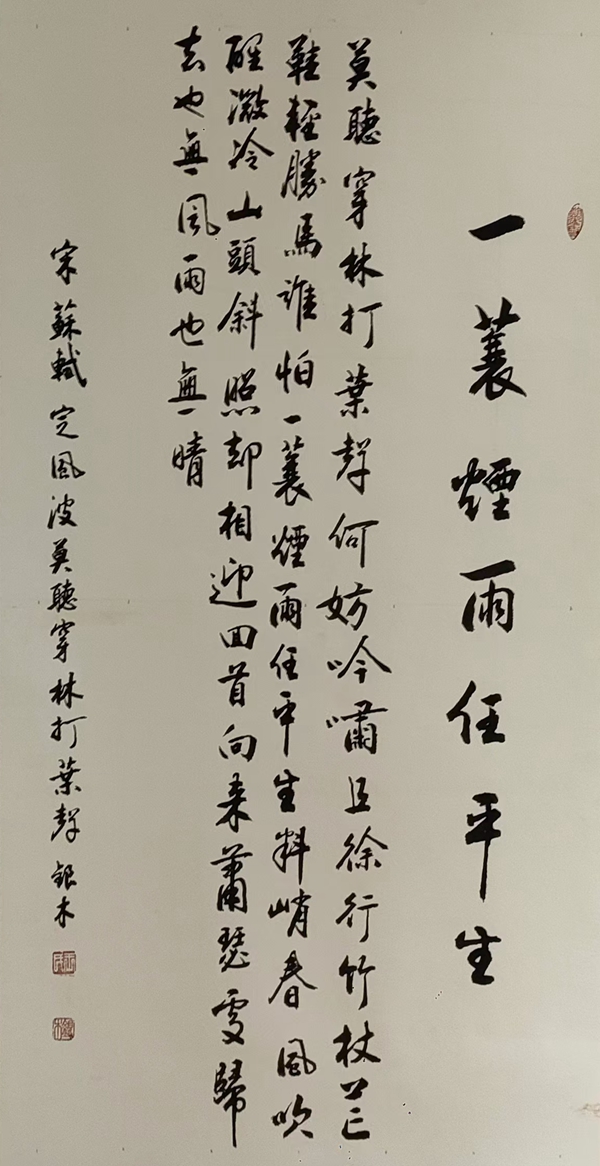 一蓑煙雨任平生
莫聽穿林打葉聲何妨吟嘯且徐行竹杖芒
鞋輕勝馬誰怕一蓑煙雨任平生料峭春風吹
醒微冷山頭斜照却相迎回首向来蕭瑟處歸
去也無風雨也無晴
宋蘇軾定風波莫聽穿林打葉聲銀木